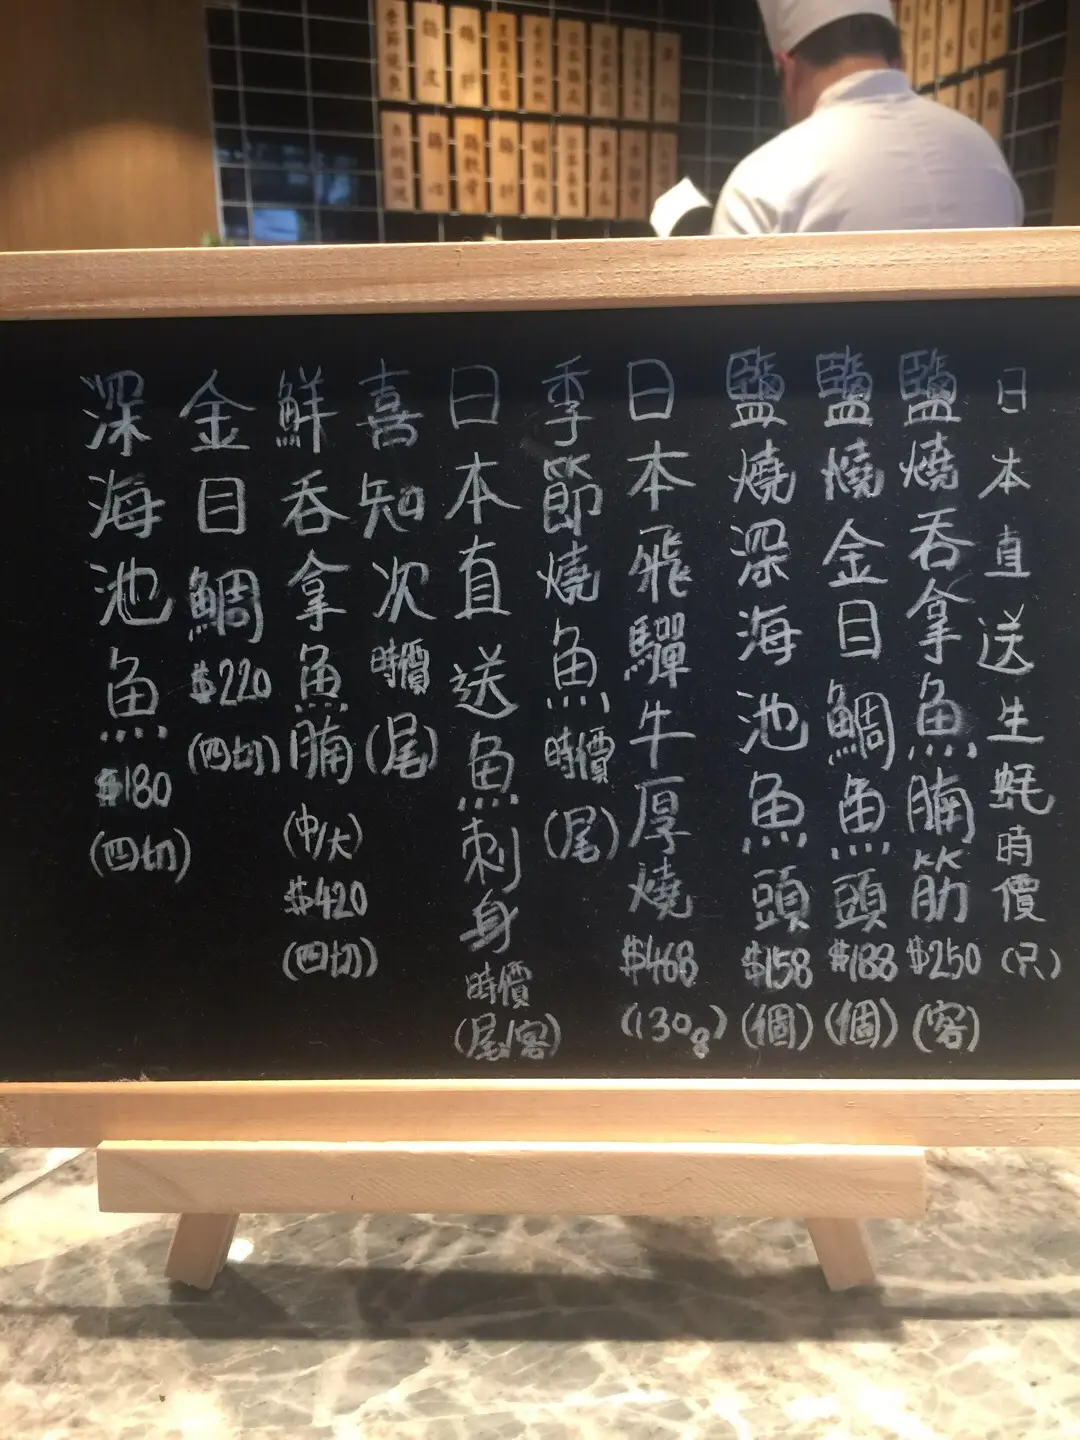 日本直送生蚝時價(只)
鹽燒吞拿魚腩筋$250(客)
鹽燒金目鯛魚頭$188(個)
鹽燒深海池魚頭$158(個)
日本飛驒牛厚燒$468(130g)
季節燒魚時價(尾)
日本直送魚刺身時價(尾/客)
喜知次時價(尾)
鮮吞拿魚腩(中/大)$420(四切)
金目鯛$220(四切)
深海池魚$180(四切)